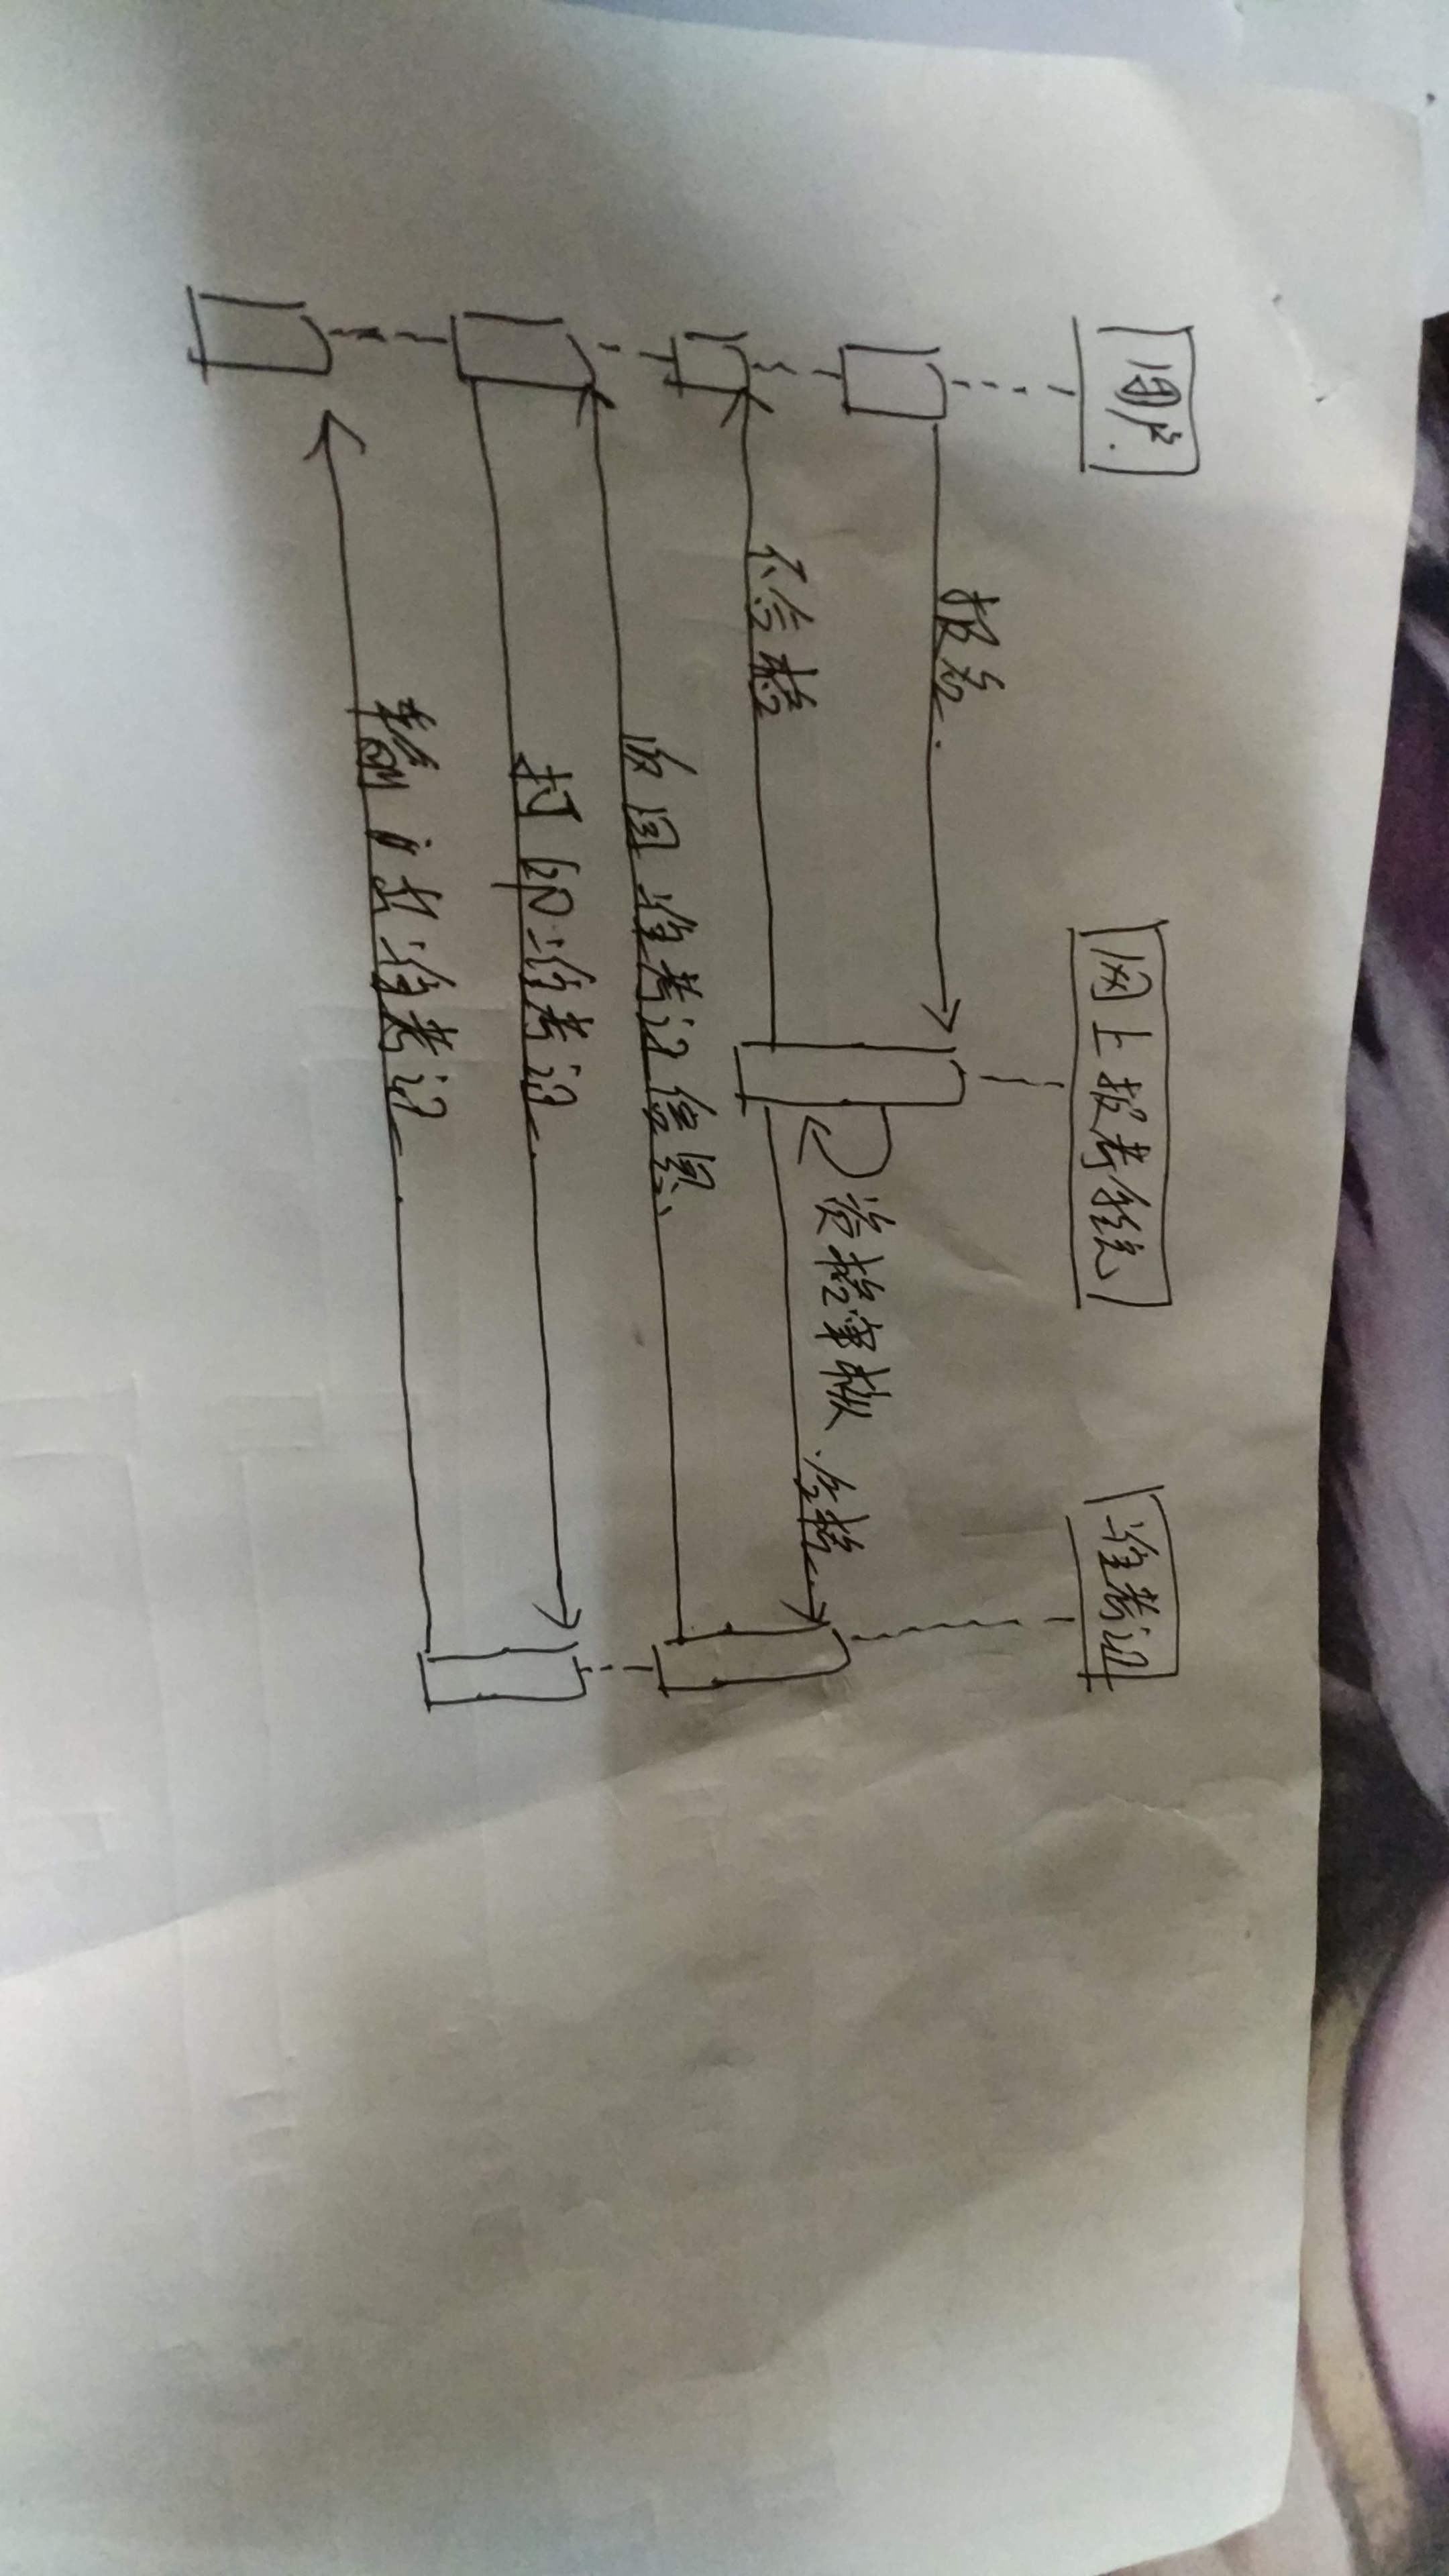 用户
网上报考系统
准考证
报名
资格审核
合格
不合格
返回准考证信息
打印准考证
输出准考证